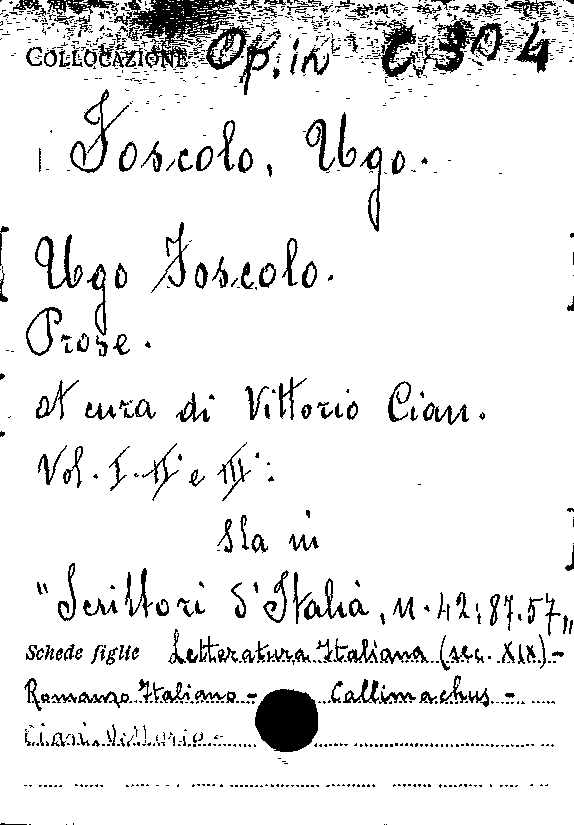 COLLOCAZIONE Op. in C. 304
Foscolo, Ugo.
Ugo Foscolo.
Prose.
A cura di Vittorio Cian.
Vol. I. II e III:
Sta in
"Scrittori d'Italia, n. 42; 87. 57„
Schede figlie Letteratura Italiana (sec. XIX) -
Romanzo Italiano - Callimachus -
Cian, Vittorio -